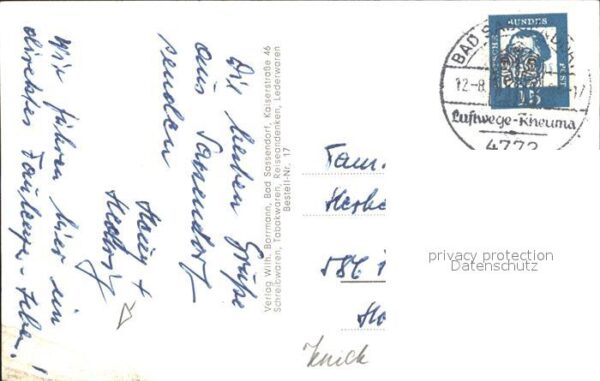 Die lieben Grüße
aus Sassendorf
senden
Heinz +
Hedwig
Wir führen hier ein
direktes Faulenzer-Leben!
Verlag Wilh. Borrmann, Bad Sassendorf, Kaiserstraße 46
Schreibwaren, Tabakwaren, Reiseandenken, Lederwaren
Bestell-Nr. 17
BAD SASSENDORF
12-8.
-17
Luftwege-Rheuma
4772
DEUTSCHE
BUNDES
POST
15
Fam.
586
Knick
privacy protection
Datenschutz